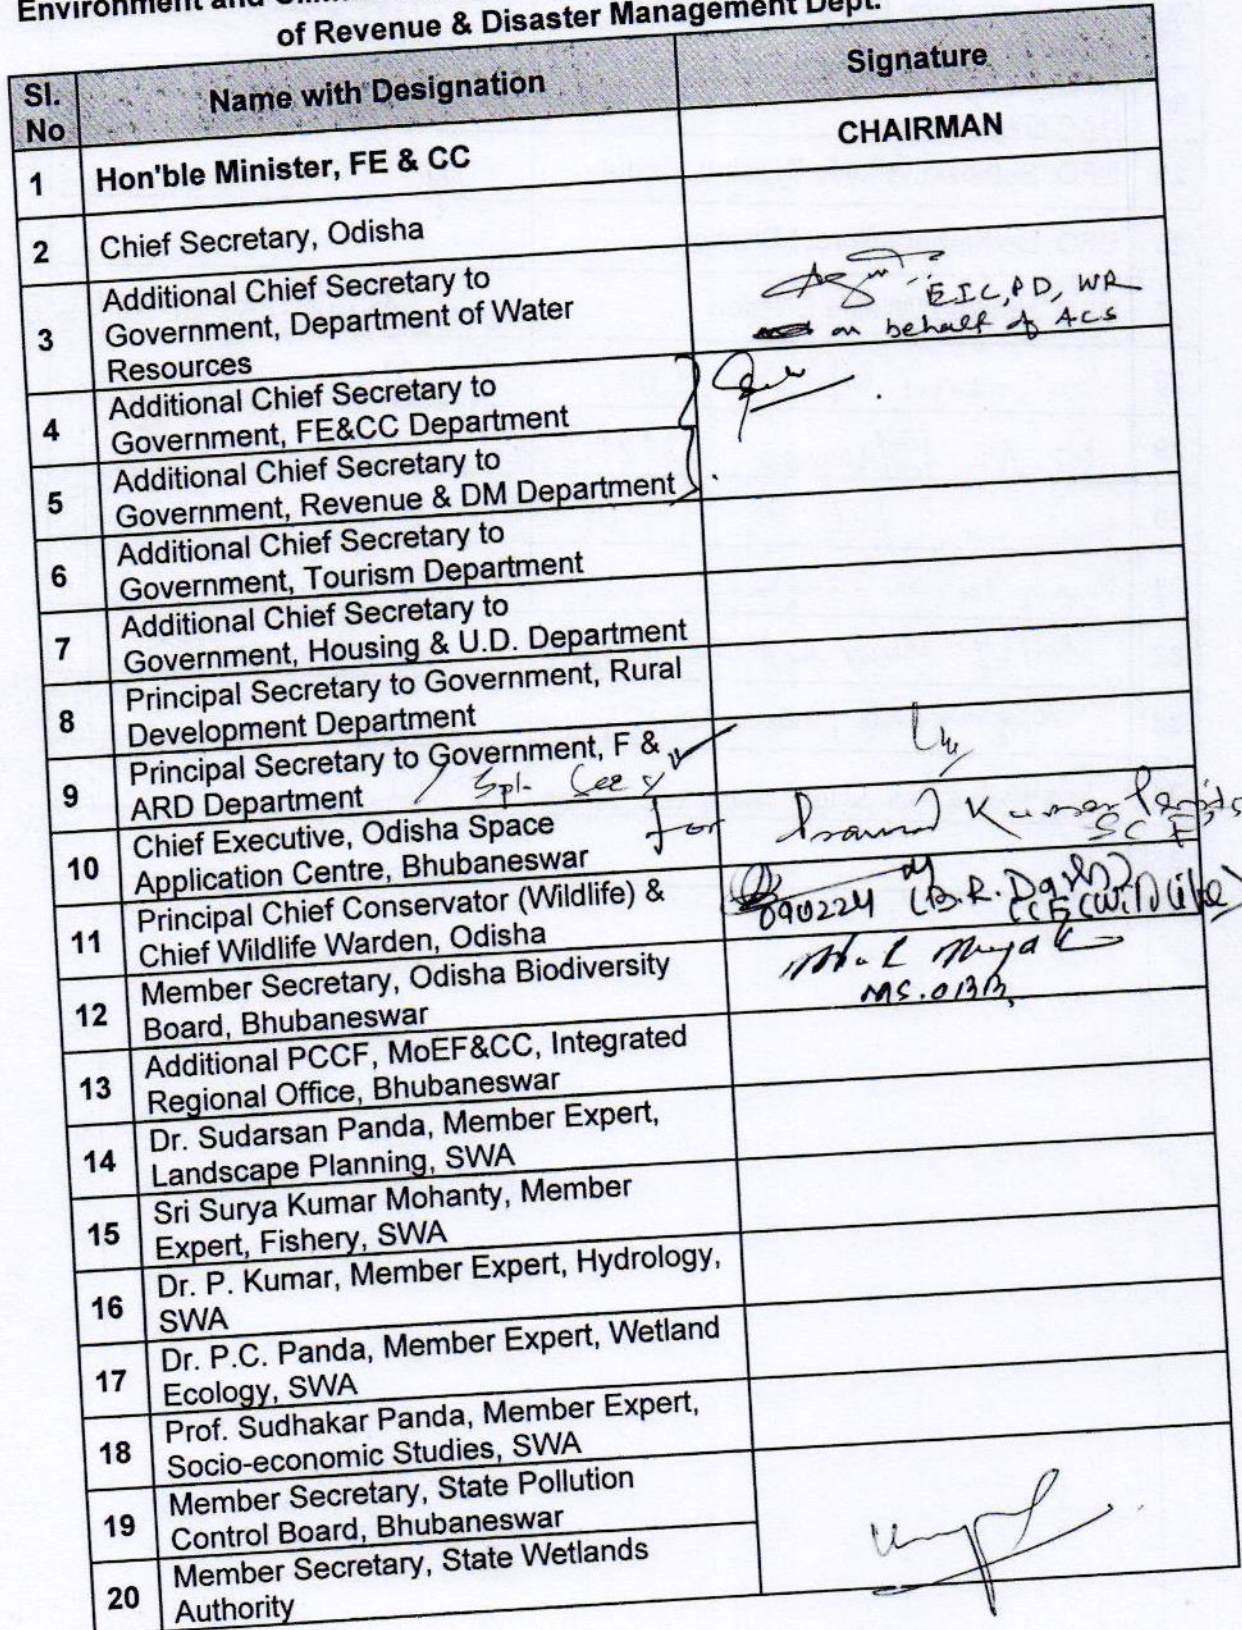 Environment and
of Revenue & Disaster Management Dept.
Sl. No
Name with Designation
Signature
1
Hon'ble Minister, FE & CC
CHAIRMAN
2
Chief Secretary, Odisha
3
Additional Chief Secretary to
Government, Department of Water
Resources
EIC, PD, WR
on behalf of ACS
4
Additional Chief Secretary to
Government, FE&CC Department
5
Additional Chief Secretary to
Government, Revenue & DM Department
6
Additional Chief Secretary to
Government, Tourism Department
7
Additional Chief Secretary to
Government, Housing & U.D. Department
8
Principal Secretary to Government, Rural
Development Department
9
Principal Secretary to Government, F &
ARD Department / Spl. Secy
10
Chief Executive, Odisha Space
Application Centre, Bhubaneswar
for
Kumar
11
Principal Chief Conservator (Wildlife) &
Chief Wildlife Warden, Odisha
090224 (B.R. Dash)
CCF (Wildlife)
12
Member Secretary, Odisha Biodiversity
Board, Bhubaneswar
MS. OBB
13
Additional PCCF, MoEF&CC, Integrated
Regional Office, Bhubaneswar
14
Dr. Sudarsan Panda, Member Expert,
Landscape Planning, SWA
15
Sri Surya Kumar Mohanty, Member
Expert, Fishery, SWA
16
Dr. P. Kumar, Member Expert, Hydrology,
SWA
17
Dr. P.C. Panda, Member Expert, Wetland
Ecology, SWA
18
Prof. Sudhakar Panda, Member Expert,
Socio-economic Studies, SWA
19
Member Secretary, State Pollution
Control Board, Bhubaneswar
20
Member Secretary, State Wetlands
Authority